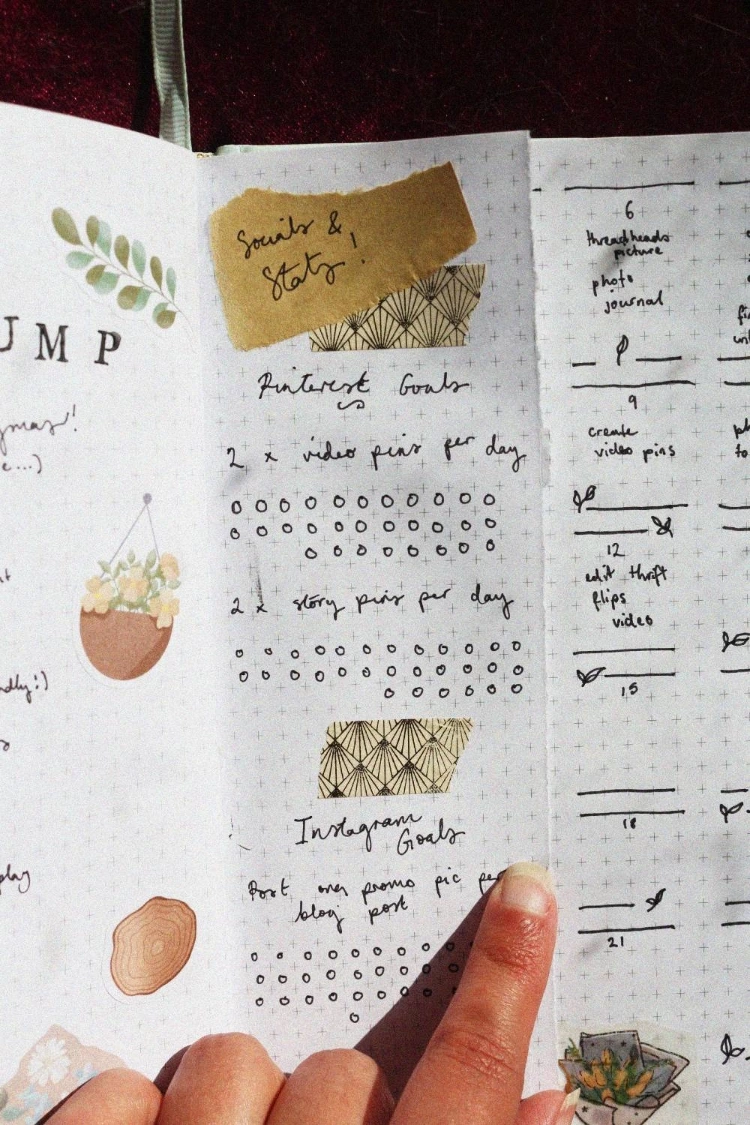 UMP
Socials &
Stats!
Pinterest Goals
2 x video pins per day
2 x story pins per day
Instagram
Goals
Post one promo pic per
blog post
6
threadheads
picture
photo
journal
9
create
video pins
12
edit thrift
flips
video
15
18
21